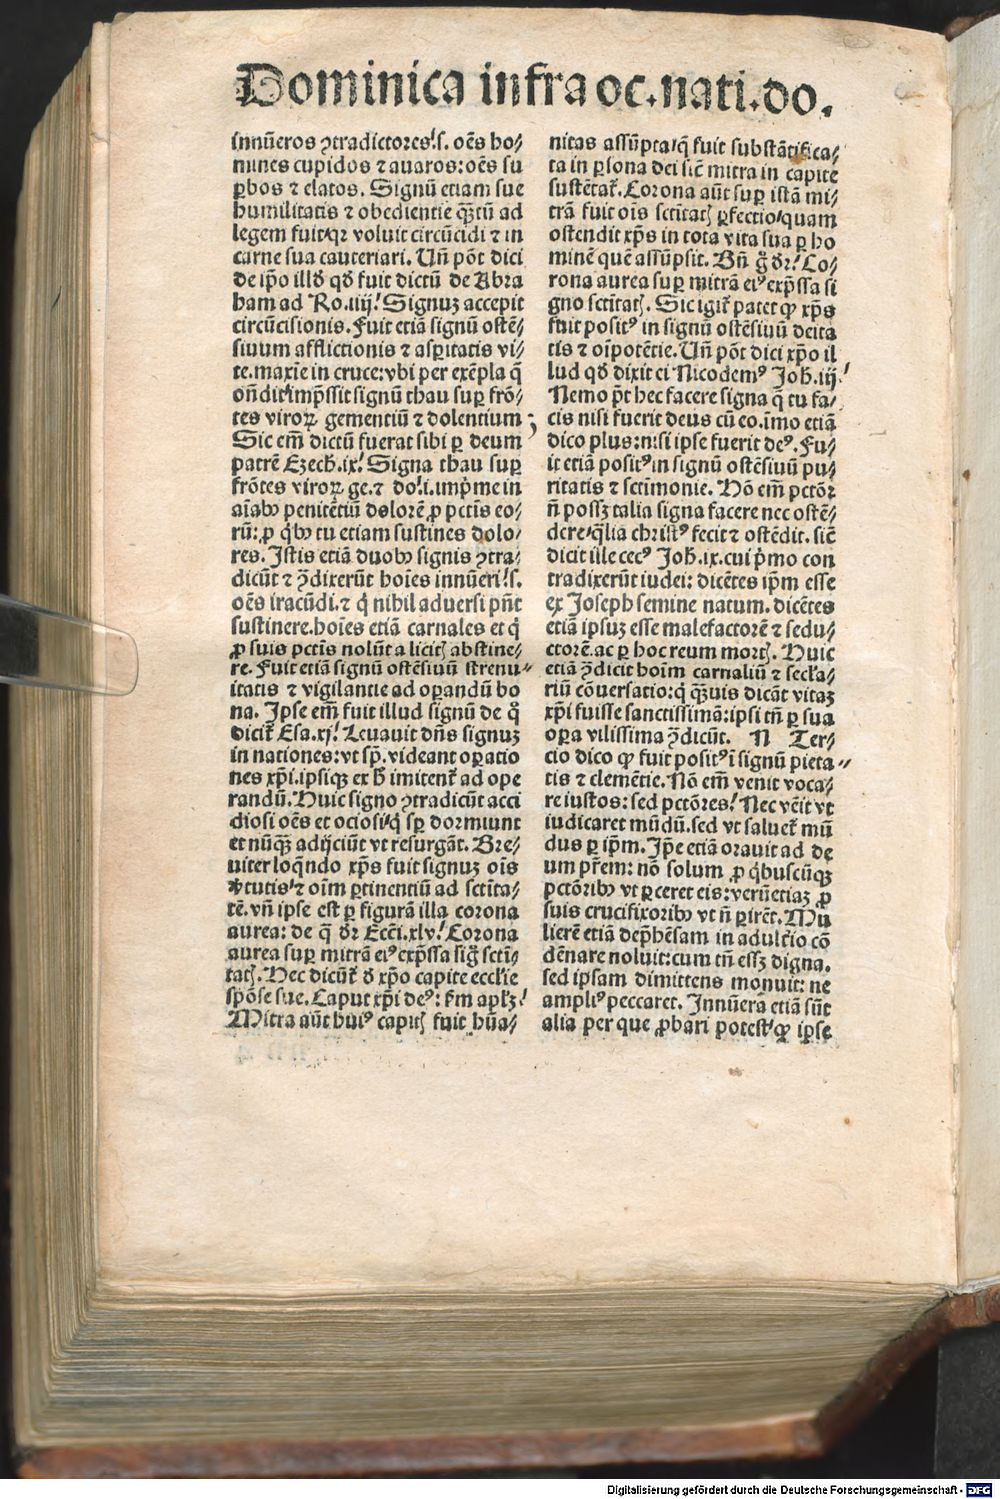 Dominica infra oc.nati.do.
innũeros ꝯtradictores/.s. oẽs ho/
mines cupidos ⁊ auaros: oẽs su
ꝑbos ⁊ elatos. Signũ etiam sue
humilitatis ⁊ obedientie qꝫtũ ad
legem fuit/qꝛ voluit circũcidi ⁊ in
carne sua cauteriari. Un̄ põt dici
de ip̃o illđ qđ fuit dictũ de Abra
ham ad Ro.iiij/ Signuꝫ accepit
circũcisionis. Fuit etiã signũ ostẽ/
siuum afflictionis ⁊ asꝑitatis vi/
te.maxĩe in cruce: vbi per exẽpla q̃
on̄dit/imp̃ssit signũ thau suꝑ frõ/
tes viroꝝ gementiũ ⁊ dolentium;
Sic em̃ dictũ fuerat sibi ꝑ deum
patrẽ Ezech.ix/ Signa thau suꝑ
frõtes viroꝝ ge.⁊ do/.i.imp̃me in
aĩabꝫ penitẽtiũ dolorẽ ꝓ pctĩs eo/
rũ: ꝓ q̇bꝫ tu etiam sustines dolo/
res. Istis etiã duobꝫ signis ꝯtra/
dicũt ⁊ ꝯ̃dixerũt hoĩes innũeri/.s.
oẽs iracũdi.⁊ q̇ nihil aduersi pñt
sustinere.hoĩes etiã carnales et q̇
ꝓ suis pctĩs nolũt a licitꝭ abstine/
re. Fuit etiã signũ ostẽsiuũ strenu/
itatis ⁊ vigilantie ad oꝑandũ bo
na. Ipse em̃ fuit illud signũ de q̊
dicit̃ Esa.xj/ Leuauit dñs signuꝫ
in nationes: vt sp̃.videant oꝑatio
nes xp̃i.ipsiqꝫ et hĩ imitent̃ ad ope
randũ. Huic signo ꝯtradicũt acci
diosi oẽs et ociosi/q̇ sꝑ dormiunt
et nũqꝫ adijciũt vt resurgãt. Bre/
uiter loq̃ndo xp̃s fuit signuꝫ oĩs
v̉tutis/⁊ oĩm ꝑtinentiũ ad sctĩta/
tẽ.vñ ipse est ꝑ figurã illa corona
aurea: de q̃ dꝛ Ecci.xlv/ Corona
aurea suꝑ mitrã ei⁹ exp̃ssa sig̊ sctĩ/
tatꝭ. Hec dicũt̃ đ xp̃o capite ecclie
sp̃õse sue. Caput xp̃i de⁹: ẜm apl̃ꝫ/
Mitra aũt hui⁹ capitꝭ fuit hũa/
nitas assũpta/q̃ fuit substãtifica/
ta in ꝑsona dei sic̃ mitra in capite
sustẽtat̃. Corona aũt suꝑ istã mi/
trã fuit oĩs sctĩtatꝭ ꝑfectio/quam
ostendit xp̃s in tota vita sua ꝑ ho
minẽ quẽ assũpsit. Bñ g̊ dꝛ/ Co/
rona aurea suꝑ mitrã ei⁹ exp̃ssa si
gno sctĩtatꝭ. Sic igit̃ patet ꝙ xp̃s
fuit posit⁹ in signũ ostẽsiuũ deita
tis ⁊ oĩpotẽtie. Un̄ põt dici xp̃o il
lud qđ dixit ei Nicodem⁹ Joh.iij/
Nemo p̃t hec facere signa q̃ tu fa/
cis nisi fuerit deus cũ eo.ĩmo etiã
dico plus: nisi ipse fuerit de⁹. Fu/
it etiã posit⁹ in signũ ostẽsiuũ pu/
ritatis ⁊ sctĩmonie. Nõ em̃ pctõꝛ
ñ possꝫ talia signa facere nec ostẽ/
dere/q̃lia christ⁹ fecit ⁊ ostẽdit. sic̃
dicit ille cec⁹ Joh.ix.cui p̃mo con
tradixerũt iudei: dicẽtes ip̃m esse
ex Joseph semine natum. dicẽtes
etiã ipsuꝫ esse malefactorẽ ⁊ sedu/
ctorẽ.ac ꝑ hoc reum mortꝭ. Huic
etiã ꝯ̃dicit hoĩm carnaliũ ⁊ secl̃a/
riũ cõuersatio: q̇ qꝫuis dicãt vitaꝫ
xp̃i fuisse sanctissimã: ipsi tñ ꝑ sua
oꝑa vilissima ꝯ̃dicũt. N Ter/
cio dico ꝙ fuit posit⁹ ĩ signũ pieta/
tis ⁊ clemẽtie. Nõ em̃ venit voca/
re iustos: sed pctõres/ Nec vẽit vt
iudicaret mũdũ.sed vt saluet̃ mũ
dus ꝑ ip̃m. Ip̃e etiã orauit ad de
um pr̃em: nõ solum ꝓ q̇buscũqꝫ
pctõribꝫ vt ꝑceret eis: verũetiaꝫ ꝓ
suis crucifixoribꝫ vt ñ ꝑirẽt. Mu
lierẽ etiã dep̃hẽsam in adult̃io cõ
dẽnare noluit: cum tñ essꝫ digna.
sed ipsam dimittens monuit: ne
ampli⁹ peccaret. Innũera etiã sũt
alia per que ꝓbari potest/ꝙ ipse
Digitalisierung gefördert durch die Deutsche Forschungsgemeinschaft - DFG